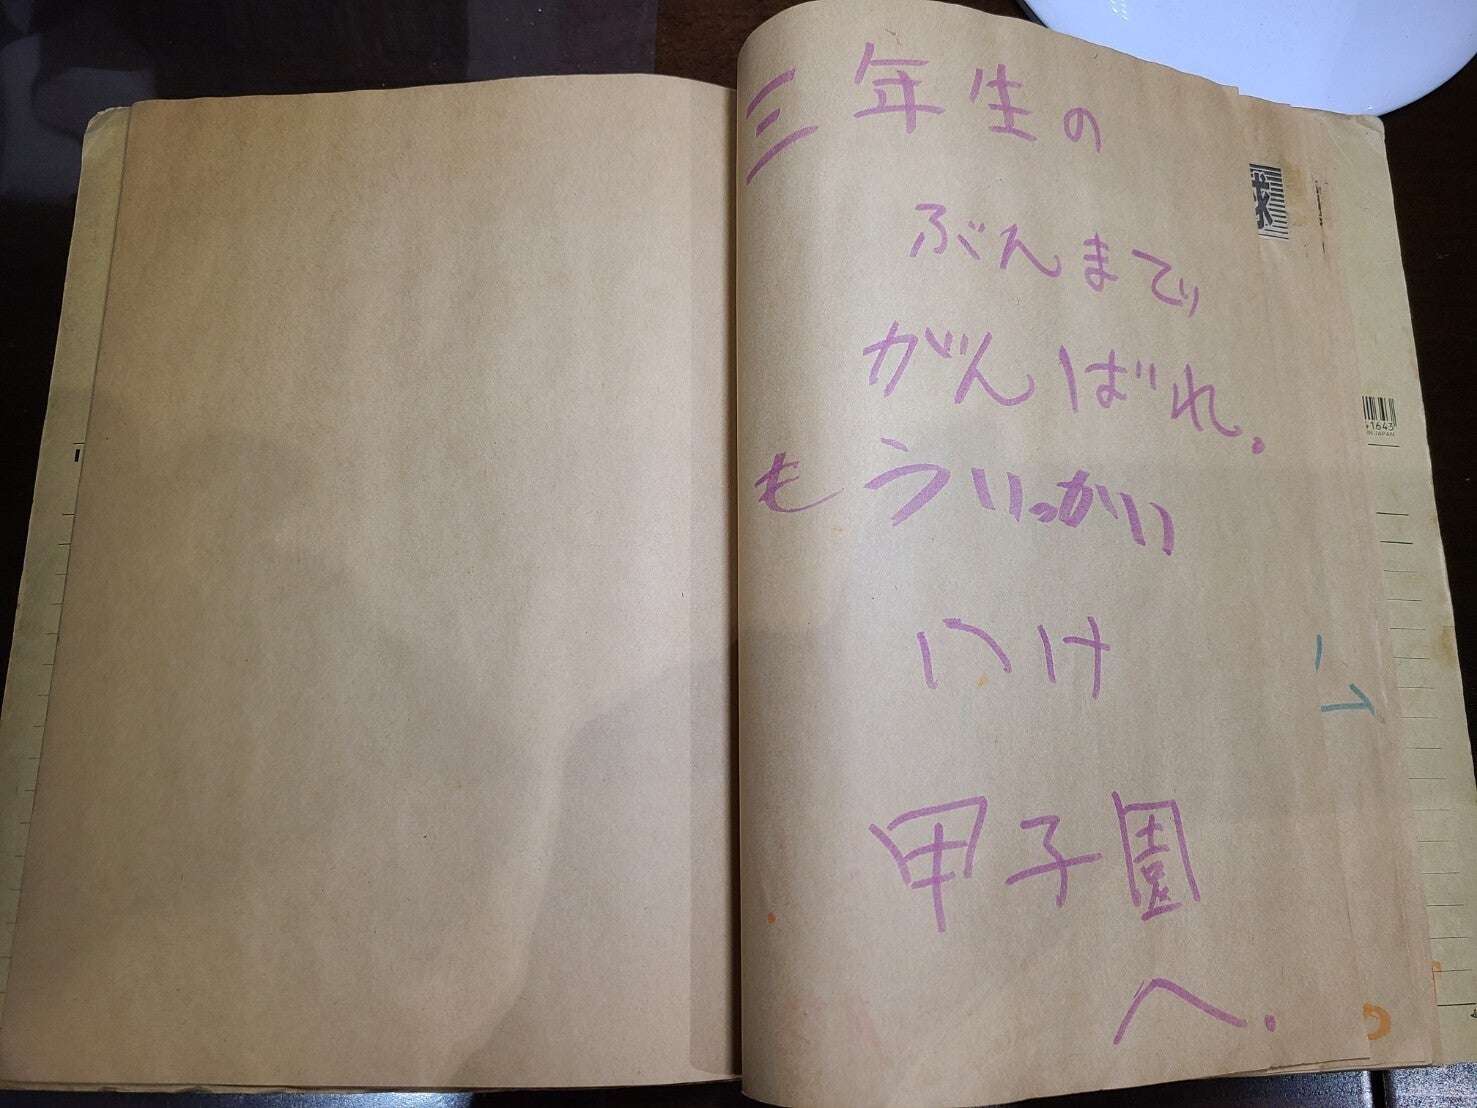 三年生の
ぶんまで
がんばれ。
もういっかい
いけ
甲子園
へ.
球
41643
IN JAPAN